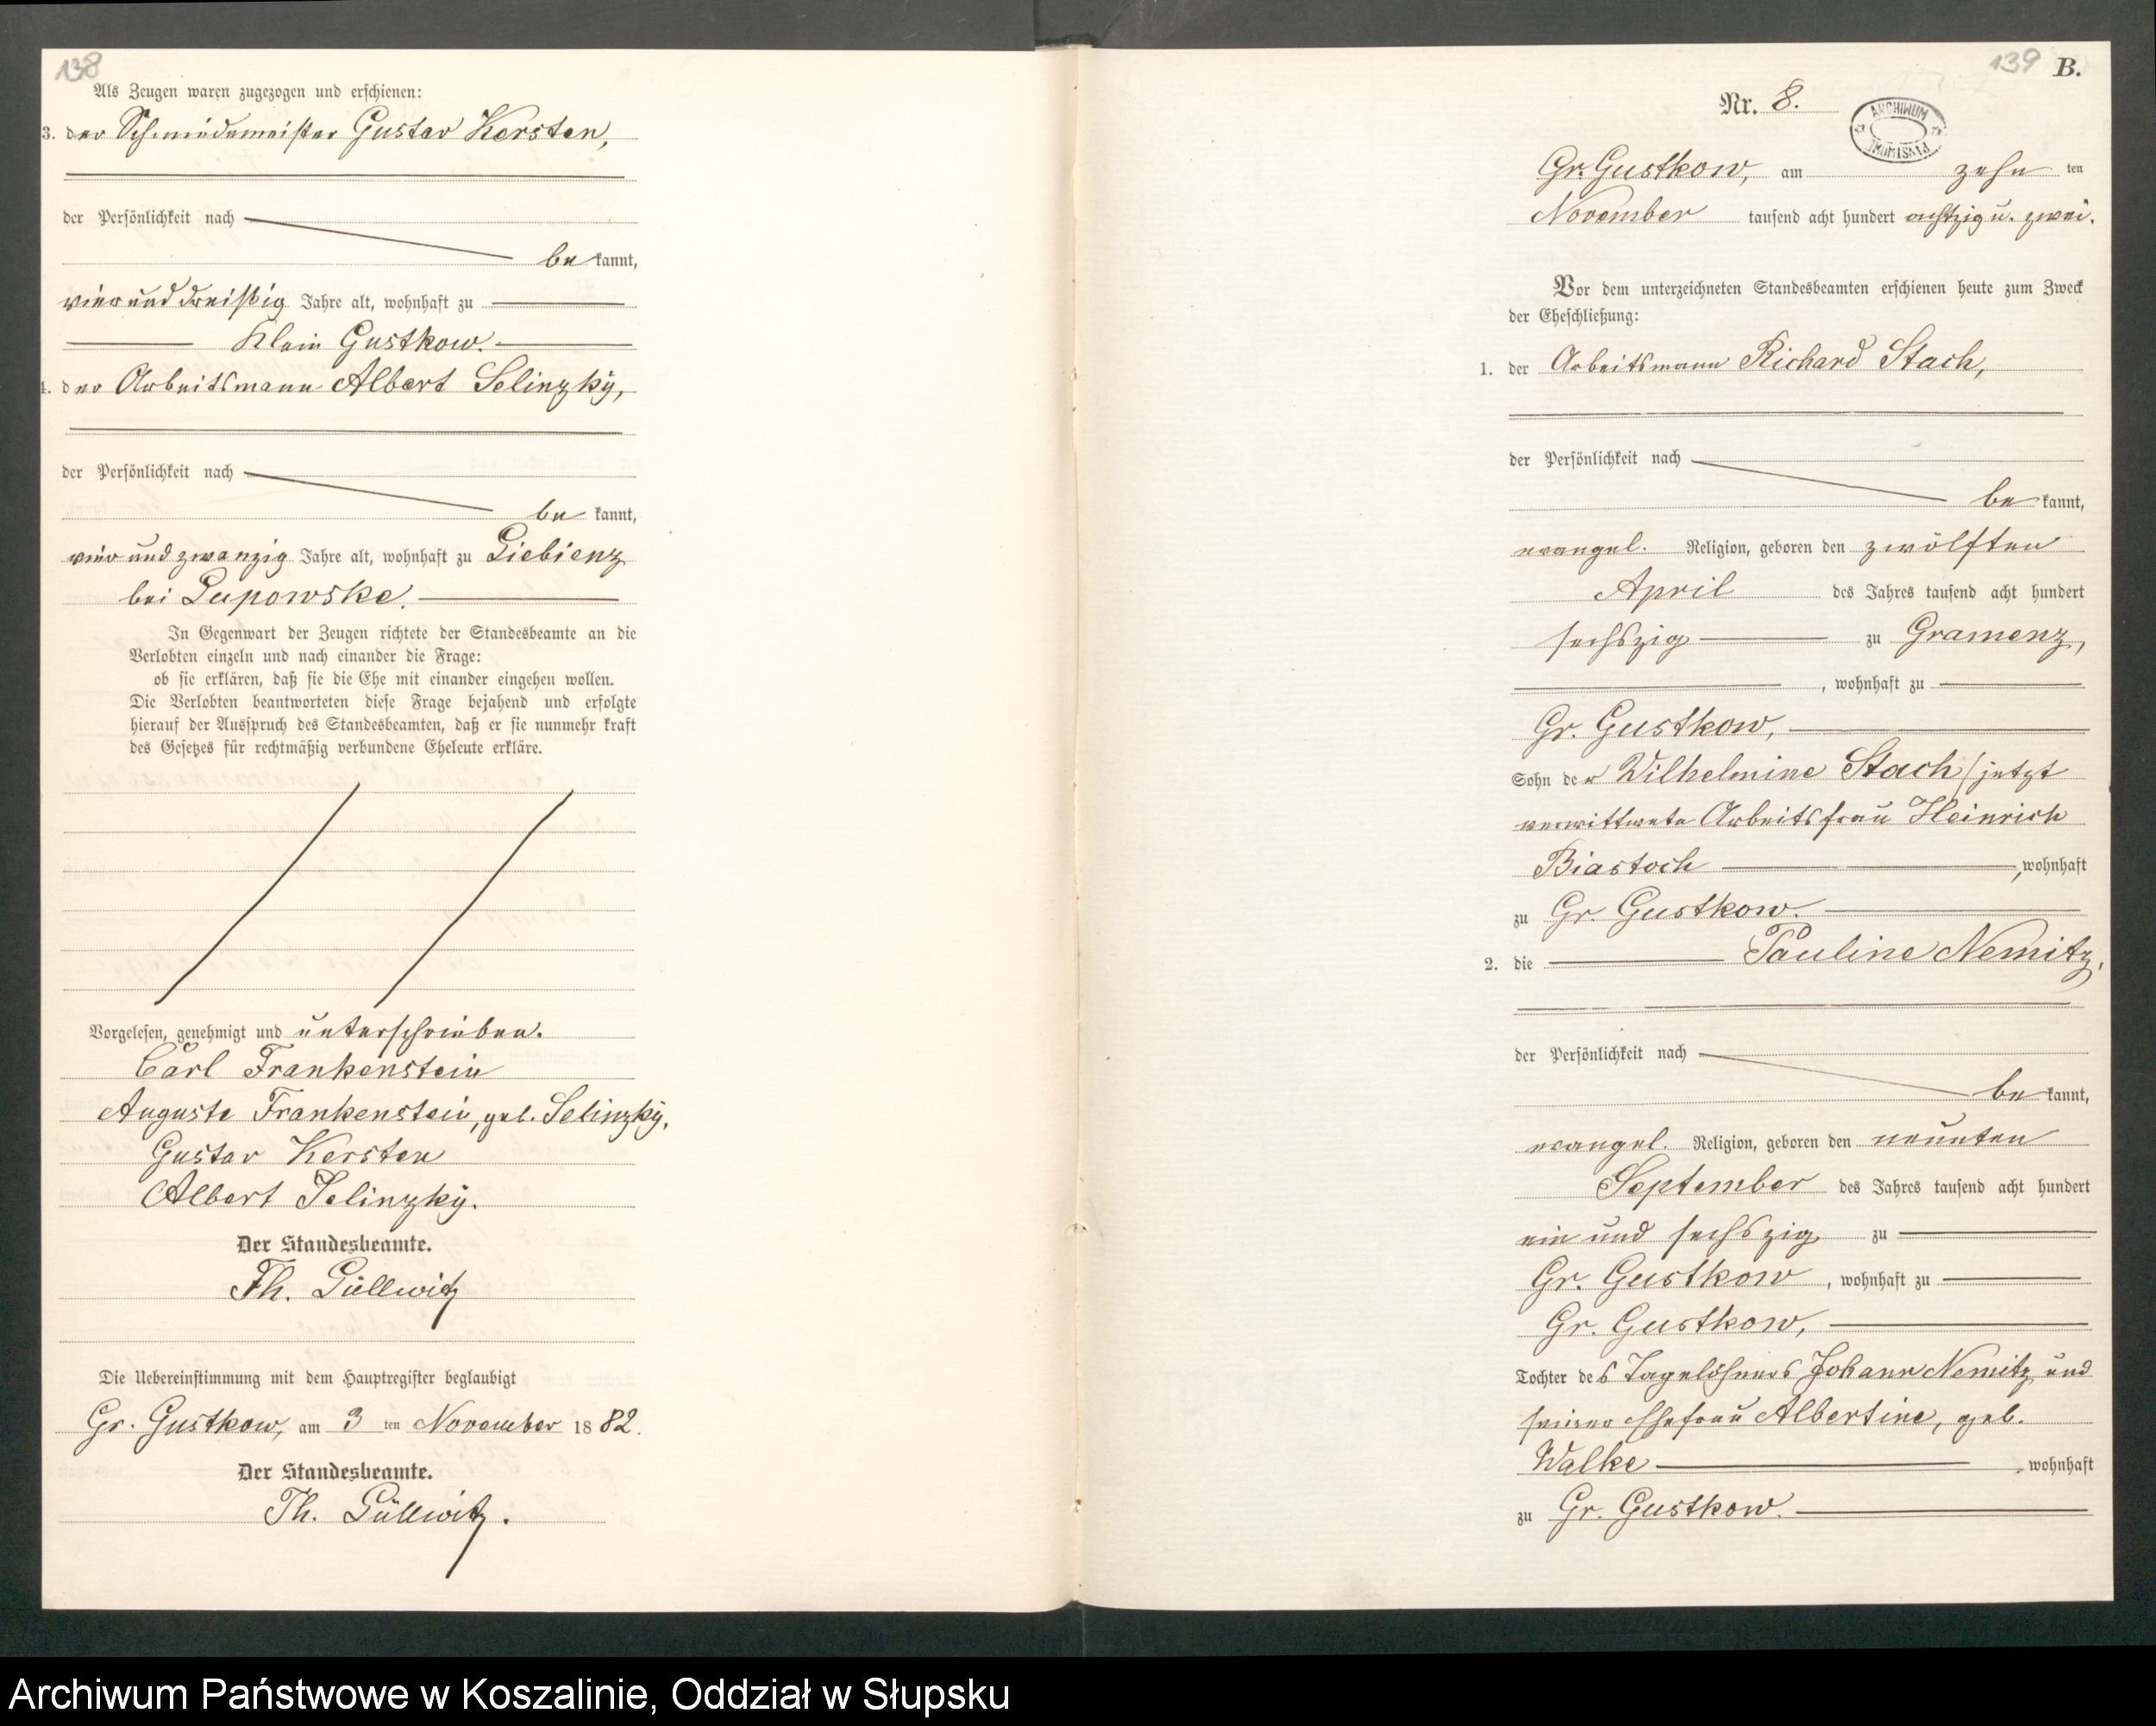 138
Als Zeugen waren zugezogen und erschienen:
3. der Schmiedemeister Gustav Kersten,
der Persönlichkeit nach
bekannt,
vier und dreißig Jahre alt, wohnhaft zu
Klein Gustkow.
4. der Arbeitsmann Albert Selinzky,
der Persönlichkeit nach
be kannt,
vier und zwanzig Jahre alt, wohnhaft zu Liebienz
bei Lupowske.
In Gegenwart der Zeugen richtete der Standesbeamte an die
Verlobten einzeln und nach einander die Frage:
ob sie erklären, daß sie die Ehe mit einander eingehen wollen.
Die Verlobten beantworteten diese Frage bejahend und erfolgte
hierauf der Ausspruch des Standesbeamten, daß er sie nunmehr kraft
des Gesetzes für rechtmäßig verbundene Eheleute erkläre.
Vorgelesen, genehmigt und unterschrieben.
Carl Frankenstein
Auguste Frankenstein, geb. Selinzky.
Gustav Kersten
Albert Selinzky.
Der Standesbeamte.
Th. Güllwitz
Die Uebereinstimmung mit dem Hauptregister beglaubigt
Gr. Gustkow, am 3 ten November 18 82.
Der Standesbeamte.
Th. Güllwitz.
139 B.
Nr. 8.
ARCHIWUM PAŃSTWOWE
Gr. Gustkow, am zehn ten
November tausend acht hundert achtzig u. zwei.
Vor dem unterzeichneten Standesbeamten erschienen heute zum Zweck
der Eheschließung:
1. der Arbeitsmann Richard Stach,
der Persönlichkeit nach
be kannt,
evangel. Religion, geboren den zwölften
April des Jahres tausend acht hundert
sechszig zu Gramenz,
, wohnhaft zu
Gr. Gustkow,
Sohn der Wilhelmine Stach (jetzt
verwittwete Arbeitsfrau Heinrich
Biastoch , wohnhaft
zu Gr. Gustkow.
2. die Pauline Nemitz,
der Persönlichkeit nach
be kannt,
evangel. Religion, geboren den neunten
September des Jahres tausend acht hundert
ein und sechszig zu
Gr. Gustkow , wohnhaft zu
Gr. Gustkow,
Tochter des Tagelöhners Johann Nemitz und
seiner Ehefrau Albertine, geb.
Walke , wohnhaft
zu Gr. Gustkow.
Archiwum Państwowe w Koszalinie, Oddział w Słupsku